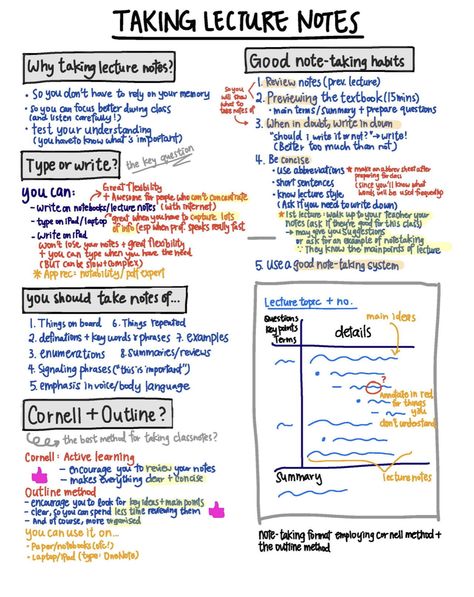 TAKING LECTURE NOTES
Why taking lecture notes?
• So you don't have to rely on your memory
• so you can focus better during class
(and listen carefully!)
• test your understanding
(you have to know what's important)
Type or write?
the key question
you can:
Great flexibility
+ Awesome for people who can't concentrate
- write on notebooks/lecture notes (with internet)
- type on iPad/laptop
great when you have to capture lots
of info (esp when prof. speaks really fast
- write on iPad
won't lose your notes + great flexibility
+ you can type when you have the need
(BUT can be slow + complex)
* App rec: notability/pdf expert
you should take notes of...
1. Things on board
2. definations + key words & phrases
3. enumerations
4. Signaling phrases ("this is important")
5. emphasis in voice/body language
6. Things repeated
7. examples
8. summaries/reviews
Cornell + Outline?
the best method for taking class notes?
Cornell: Active learning
- encourage you to review your notes
- makes everything clear + concise
Outline method
- encourage you to look for key ideas + main points
- clear, so you can spend less time reviewing them
- And of course, more organised
you can use it on...
• Paper/notebooks (ofc!)
• Laptop/iPad (type: OneNote)
Good note-taking habits
so you
will show
what to
take notes of
1. Review notes (prev. lecture)
2. Previewing the textbook (15mins)
• main terms/summary + prepare questions
3. When in doubt, write in down
"should I write it or not?" → write!
(Better too much than not)
4. Be concise
• use abbreviations
* make an abbr sheet after
preparing for class
(since you'll know what
words will be used frequently)
• short sentences
• know lecture style
(Ask if you need to write down)
* 1st lecture: walk up to your teacher your
notes (ask if they're good for this class)
→ may give you suggestions
or ask for an example of notetaking
∵ They know the main points of lecture
5. Use a good note-taking system
Lecture topic + no.
main ideas
Questions
Key points
Terms
details
?
Annotate in red
for things
you
don't understand
lecture notes
Summary
note-taking format employing cornell method +
the outline method